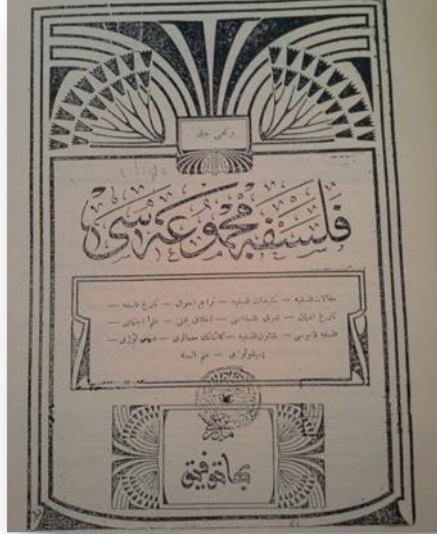 برنجی جلد
فلسفه مجموعه سی
مقالات فلسفیه — تتبعات فلسفیه — تراجم احوال — تاریخ فلسفه —
تاریخ ادیان — شرق فلسفه‌سی — اخلاق — علم اجتماعی —
فلسفه قاموسی — فلسفیه — کائنات معمالری —
پسیقولوژی — علم السنه
مدیری
بها توفیق